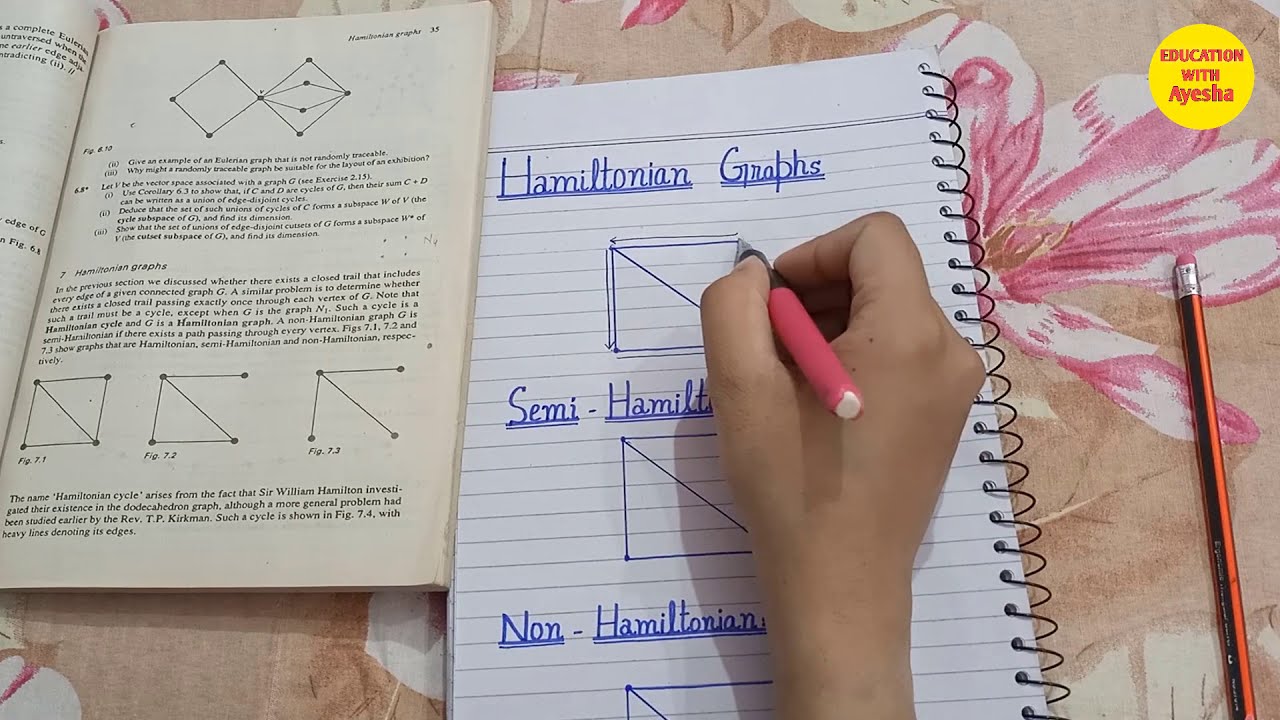 s a complete Eulerian
untraversed when the
ne earlier edge adja
ntradicting (ii). //
s.
edge of G
n Fig. 6.8
Hamiltonian graphs 35
v
Fig. 6.10
(ii) Give an example of an Eulerian graph that is not randomly traceable.
(iii) Why might a randomly traceable graph be suitable for the layout of an exhibition?
6.8* Let V be the vector space associated with a graph G (see Exercise 2.15).
(i) Use Corollary 6.3 to show that, if C and D are cycles of G, then their sum C + D
can be written as a union of edge-disjoint cycles.
(ii) Deduce that the set of such unions of cycles of C forms a subspace W of V (the
cycle subspace of G), and find its dimension.
(iii) Show that the set of unions of edge-disjoint cutsets of G forms a subspace W* of
V (the cutset subspace of G), and find its dimension.
7 Hamiltonian graphs
In the previous section we discussed whether there exists a closed trail that includes
every edge of a given connected graph G. A similar problem is to determine whether
there exists a closed trail passing exactly once through each vertex of G. Note that
such a trail must be a cycle, except when G is the graph N₁. Such a cycle is a
Hamiltonian cycle and G is a Hamiltonian graph. A non-Hamiltonian graph G is
semi-Hamiltonian if there exists a path passing through every vertex. Figs 7.1, 7.2 and
7.3 show graphs that are Hamiltonian, semi-Hamiltonian and non-Hamiltonian, respec-
tively.
Fig. 7.1
Fig. 7.2
Fig. 7.3
The name 'Hamiltonian cycle' arises from the fact that Sir William Hamilton investi-
gated their existence in the dodecahedron graph, although a more general problem had
been studied earlier by the Rev. T.P. Kirkman. Such a cycle is shown in Fig. 7.4, with
heavy lines denoting its edges.
Hamiltonian Graphs
Semi - Hamilt
Non - Hamiltonian:
EDUCATION
WITH
Ayesha